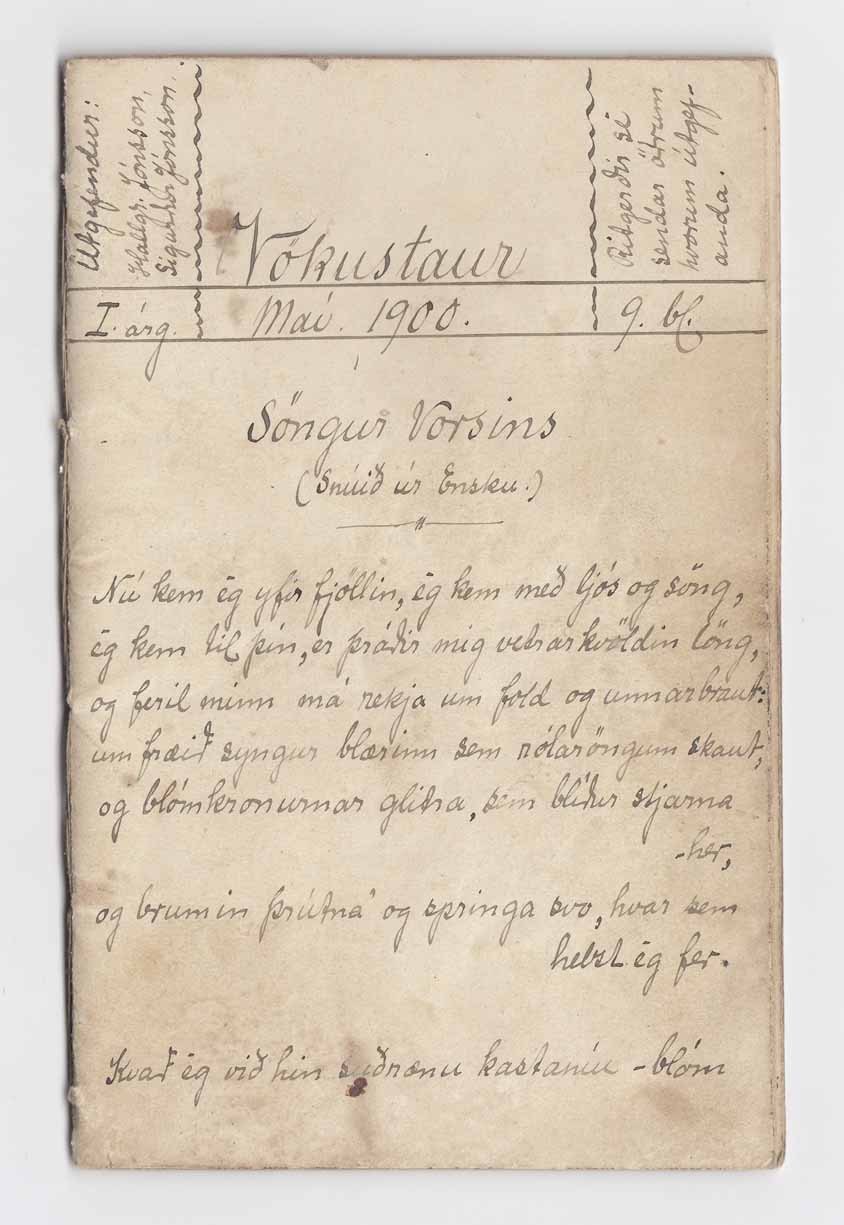 Útgefendur:
Hallgr. Jónsson,
Sigurður Jónsson.
Vökustaur
Ritgerðir sé
sendar öðrum
hvorum útgef-
anda.
I. árg. Maí. 1900. 9. bl.
Söngur Vorsins
(Snúið úr Ensku.)
Nú kem ég yfir fjöllin, ég kem með ljós og söng,
ég kem til þín, er þráðir mig vetrarkvöldin löng,
og feril minn má rekja um fold og unnarbraut:
um fræið syngur blærinn sem sólaröngum skaut,
og blómkronurnar glitra, sem blíður stjarna
-her,
og brumin þrútna og springa svo, hvar sem
helzt ég fer.
Kvað ég við hin suðrænu kastaníu-blóm